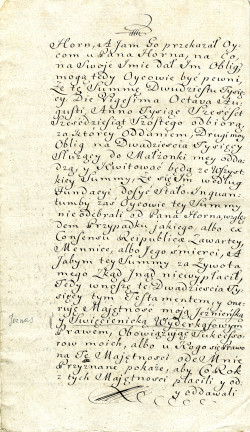 Horn, A Jam Go przekazał Oy=
com u Pana Horna, na Co,
na Swoje Imie dał Im Oblig,
mogą tedy Oycowie być pewni,
że tę Summę Dwudziestu Tysię=
cy, Die Vigesima Octava Au=
gusti Anno Tysiąc Szescset
Szescdziesiąt Szostego odbiorą,
za ktorey Oddaniem, Drugi moy
Oblig na Dwadziescia Tysięcy
Służący do Małżonki mey odda=
dzą, y Kwitować będą ze Wszyst=
kiey Summy, że się Im według
Fundacyi dosyć stało. Inquan=
tumby zas Oycowie tey Summy,
nieodebrali od Pana Horna, wzglę=
dem Przypadku jakiego, albo ex
Consensu Reipublicæ Zawartey
Mennice, albo Jego smierci, A
Jabym tey Summy za Zywota
mego Zkąd Inąd niewypłacił,
Tedy wnoszę te Dwadziescia Ty=
sięcy tym Testamentem, y one=
ruję Majętność moją Jeżnieńską
y Swięcienicką Wyderkafowym
Prawem, Obowiązując Sukcesso=
row moich, albo u Kogo się Prawo
na Te Majętności ode Mnie
Przyznane pokaże, aby Co Rok
z tych Majętności płacili y od
oddawali
Jeznas